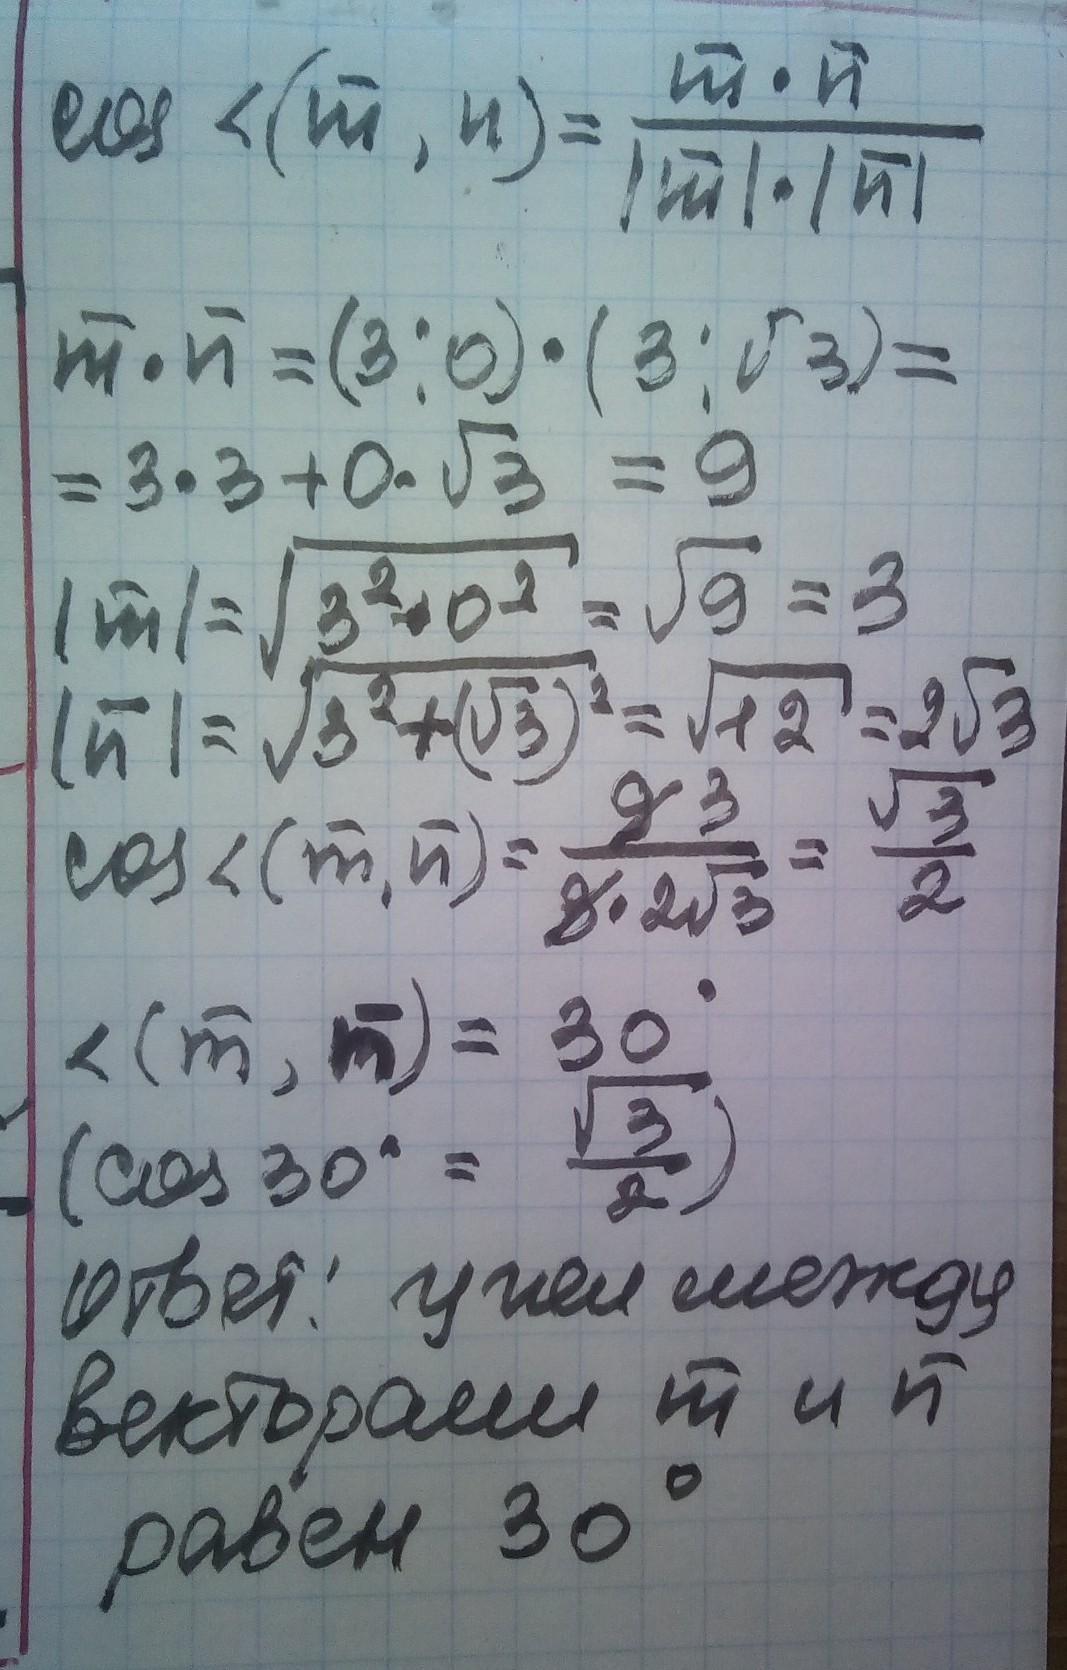 cos <(m̄, n) = m̄·n̄ / |m̄|·|n̄|
m̄·n̄ = (3; 0)·(3; √3) =
= 3·3 + 0·√3 = 9
|m̄| = √(3² + 0²) = √9 = 3
|n̄| = √(3² + (√3)²) = √12 = 2√3
cos <(m̄, n̄) = 9 3 / 3·2√3 = √3 / 2
<(m̄, n̄) = 30°
(cos 30° = √3 / 2)
Ответ: угол между
векторами m̄ и n̄
равен 30°